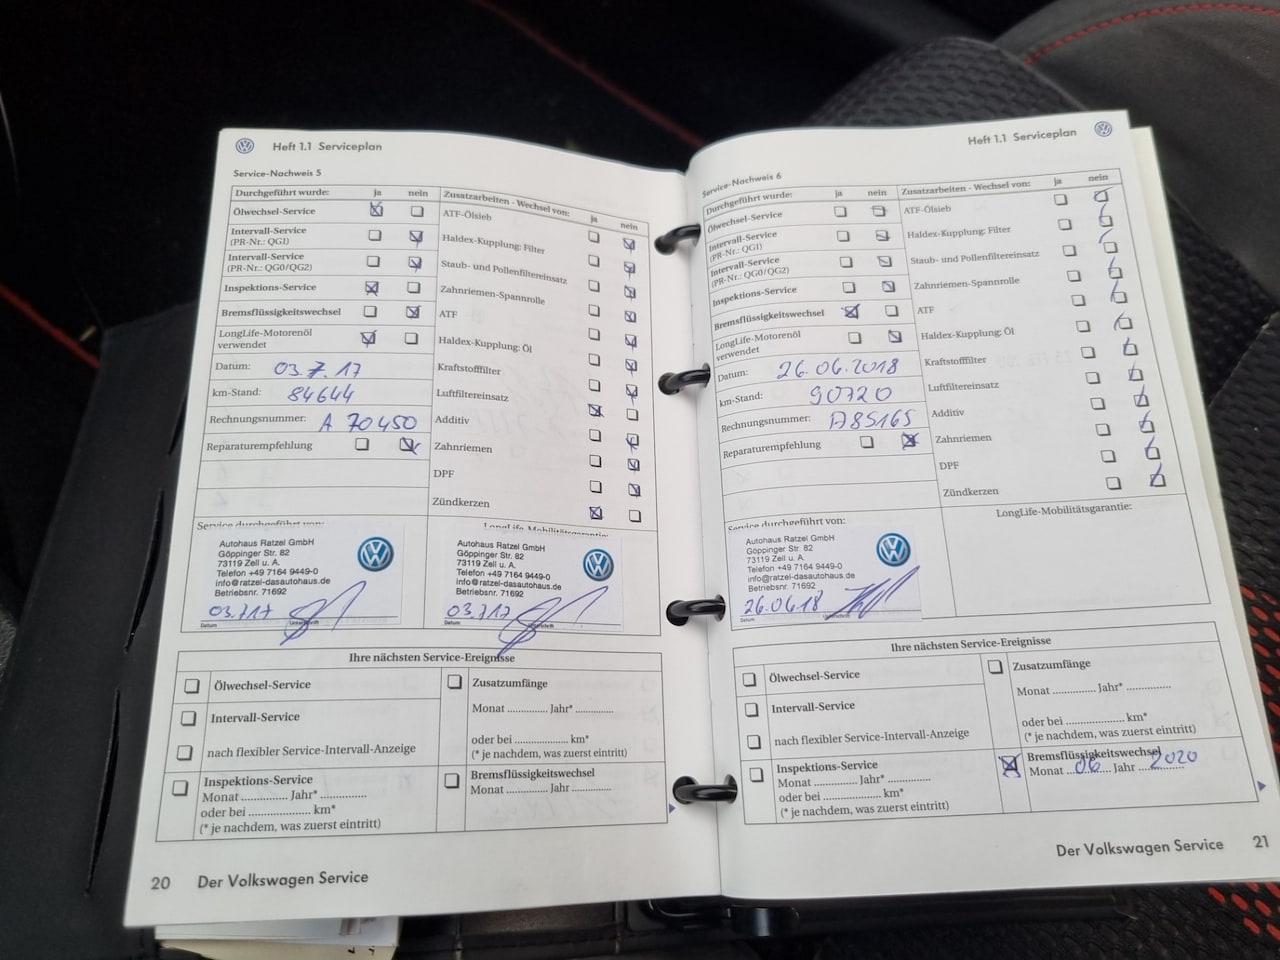 Heft 1.1 Serviceplan
Service-Nachweis 5
Durchgeführt wurde: ja nein
Ölwechsel-Service
Intervall-Service
(PR-Nr.: QG1)
Intervall-Service
(PR-Nr.: QG0/QG2)
Inspektions-Service
Bremsflüssigkeitswechsel
LongLife-Motorenöl
verwendet
Datum: 03.7.17
km-Stand: 84644
Rechnungsnummer: A 70450
Reparaturempfehlung
Zusatzarbeiten - Wechsel von: ja nein
ATF-Ölsieb
Haldex-Kupplung: Filter
Staub- und Pollenfiltereinsatz
Zahnriemen-Spannrolle
ATF
Haldex-Kupplung: Öl
Kraftstofffilter
Luftfiltereinsatz
Additiv
Zahnriemen
DPF
Zündkerzen
Service durchgeführt von:
Autohaus Ratzel GmbH
Göppinger Str. 82
73119 Zell u. A.
Telefon +49 7164 9449-0
info@ratzel-dasautohaus.de
Betriebsnr. 71692
03.7.17
Datum Unterschrift
LongLife-Mobilitätsgarantie:
Autohaus Ratzel GmbH
Göppinger Str. 82
73119 Zell u. A.
Telefon +49 7164 9449-0
info@ratzel-dasautohaus.de
Betriebsnr. 71692
03.7.17
Datum Unterschrift
Ihre nächsten Service-Ereignisse
Ölwechsel-Service
Intervall-Service
nach flexibler Service-Intervall-Anzeige
Inspektions-Service
Monat .............. Jahr* ..............
oder bei .................... km*
(* je nachdem, was zuerst eintritt)
Zusatzumfänge
Monat ............ Jahr* ............
oder bei .................... km*
(* je nachdem, was zuerst eintritt)
Bremsflüssigkeitswechsel
Monat ............ Jahr ............
20 Der Volkswagen Service
Heft 1.1 Serviceplan
Service-Nachweis 6
Durchgeführt wurde: ja nein
Ölwechsel-Service
Intervall-Service
(PR-Nr.: QG1)
Intervall-Service
(PR-Nr.: QG0/QG2)
Inspektions-Service
Bremsflüssigkeitswechsel
LongLife-Motorenöl
verwendet
Datum: 26.06.2018
km-Stand: 90720
Rechnungsnummer: A85165
Reparaturempfehlung
Zusatzarbeiten - Wechsel von: ja nein
ATF-Ölsieb
Haldex-Kupplung: Filter
Staub- und Pollenfiltereinsatz
Zahnriemen-Spannrolle
ATF
Haldex-Kupplung: Öl
Kraftstofffilter
Luftfiltereinsatz
Additiv
Zahnriemen
DPF
Zündkerzen
Service durchgeführt von:
Autohaus Ratzel GmbH
Göppinger Str. 82
73119 Zell u. A.
Telefon +49 7164 9449-0
info@ratzel-dasautohaus.de
Betriebsnr. 71692
26.06.18
Datum Unterschrift
LongLife-Mobilitätsgarantie:
Ihre nächsten Service-Ereignisse
Ölwechsel-Service
Intervall-Service
nach flexibler Service-Intervall-Anzeige
Inspektions-Service
Monat .............. Jahr* ..............
oder bei .................... km*
(* je nachdem, was zuerst eintritt)
Zusatzumfänge
Monat ............ Jahr* ............
oder bei .................... km*
(* je nachdem, was zuerst eintritt)
Bremsflüssigkeitswechsel
Monat 06 Jahr 2020
Der Volkswagen Service 21